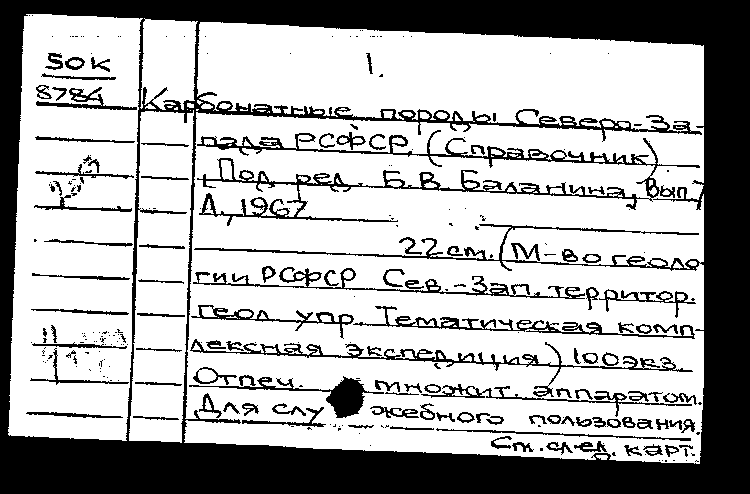 50К
1.
8784
Карбонатные породы Северо-За-
пада РСФСР. (Справочник)
[Под ред. Б.В. Баланина, Вып.]
Л., 1967
22 см. (М-во геоло-
гии РСФСР Сев.-Зап. территор.
геол упр. Тематическая комп-
лексная экспедиция) 100 экз.
Отпеч. множит. аппаратом.
Для служебного пользования
См. след. карт.